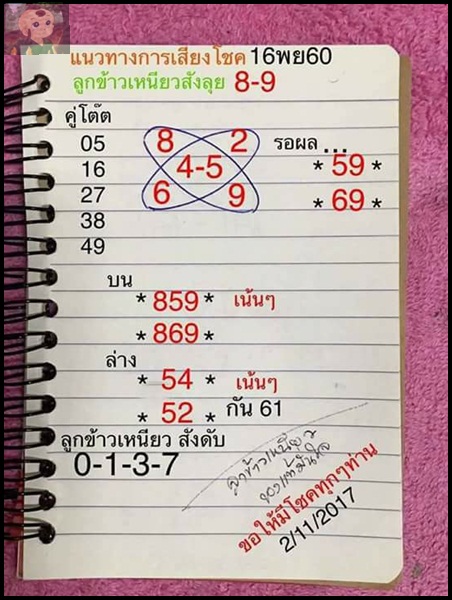 แนวทางการเสี่ยงโชค 16พย60
ลูกข้าวเหนียวสั่งลุย 8-9
คู่โต๊ต
05
16
27
38
49
8 2
4-5
6 9
รอผล ...
* 59 *
* 69 *
บน
* 859 * เน้นๆ
* 869 *
ล่าง
* 54 * เน้นๆ
* 52 * กัน 61
ลูกข้าวเหนียว สั่งดับ
0-1-3-7
ลูกข้าวเหนียว
ขอให้มีโชคทุกๆท่าน
2/11/2017